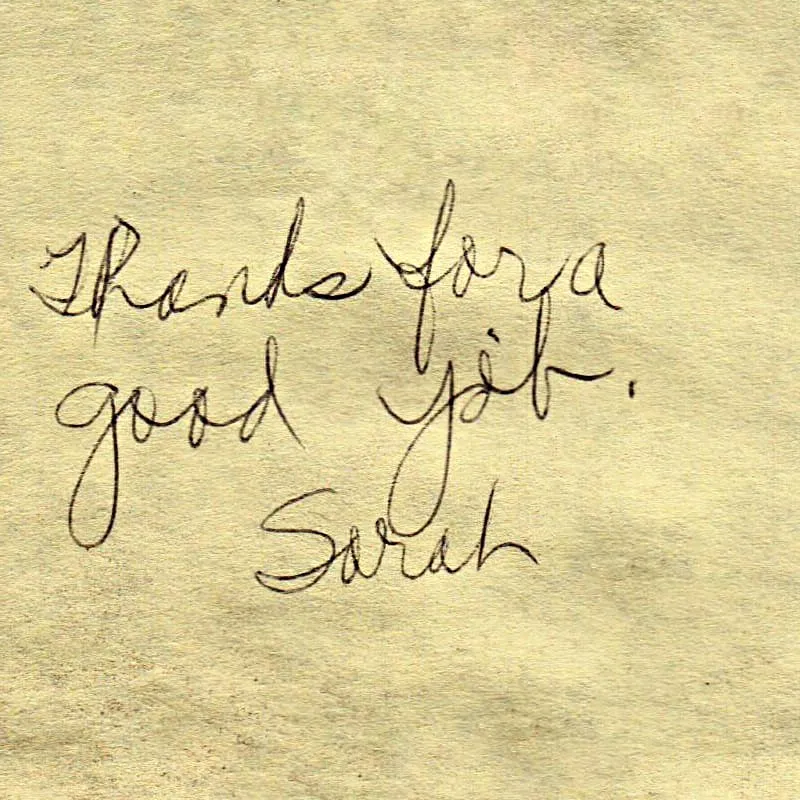 Thanks for a
good job.
Sarah